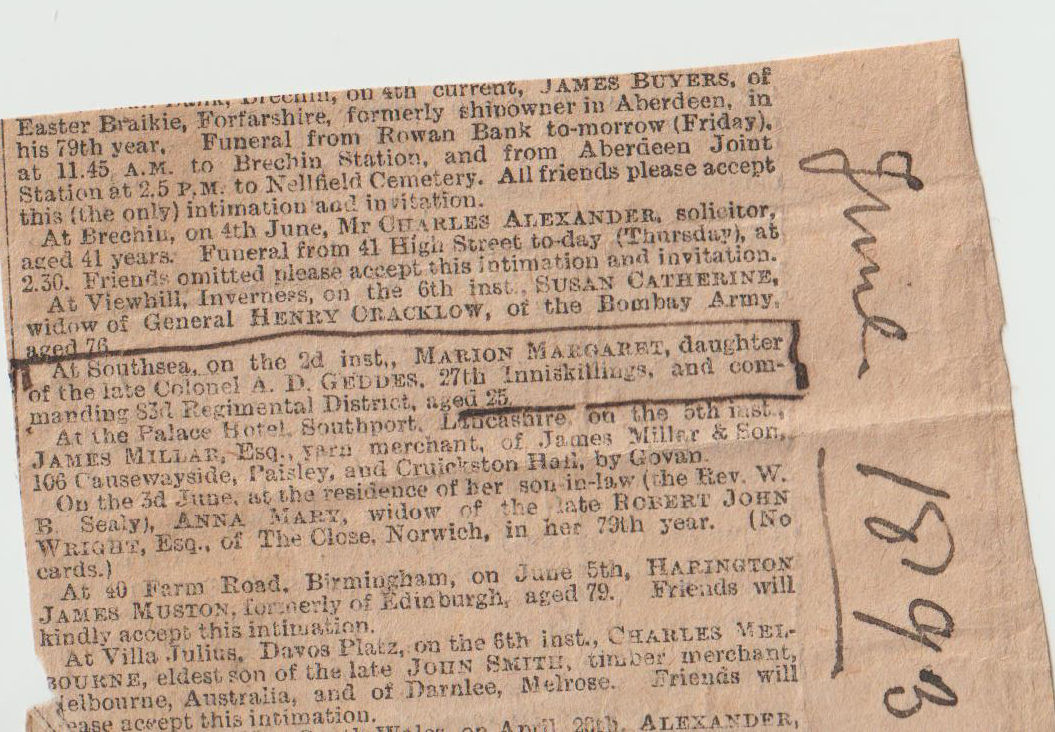 Brechin, on 4th current, JAMES BUYERS, of
Easter Braikie, Forfarshire, formerly shipowner in Aberdeen, in
his 79th year. Funeral from Rowan Bank to-morrow (Friday),
at 11.45 A.M. to Brechin Station, and from Aberdeen Joint
Station at 2.5 P.M. to Nellfield Cemetery. All friends please accept
this (the only) intimation and invitation.
At Brechin, on 4th June, Mr CHARLES ALEXANDER, solicitor,
aged 41 years. Funeral from 41 High Street to-day (Thursday), at
2.30. Friends omitted please accept this intimation and invitation.
At Viewhill, Inverness, on the 6th inst., SUSAN CATHERINE,
widow of General HENRY CRACKLOW, of the Bombay Army,
aged 76.
At Southsea, on the 2d inst., MARION MARGARET, daughter
of the late Colonel A. D. GEDDES, 27th Inniskillings, and com-
manding 83d Regimental District, aged 25.
At the Palace Hotel, Southport, Lancashire, on the 5th inst.,
JAMES MILLAR, Esq., yarn merchant, of James Millar & Son,
106 Causewayside, Paisley, and Cruickston Hall, by Govan.
On the 3d June, at the residence of her son-in-law (the Rev. W.
B. Sealy), ANNA MARY, widow of the late ROBERT JOHN
WRIGHT, Esq., of The Close, Norwich, in her 79th year. (No
cards.)
At 40 Farm Road, Birmingham, on June 5th, HARINGTON
JAMES MUSTON, formerly of Edinburgh, aged 79. Friends will
kindly accept this intimation.
At Villa Julius, Davos Platz, on the 6th inst., CHARLES MEL-
BOURNE, eldest son of the late JOHN SMITH, timber merchant,
Melbourne, Australia, and of Darnlee, Melrose. Friends will
please accept this intimation.
Wales, on April 28th, ALEXANDER,
June 1893